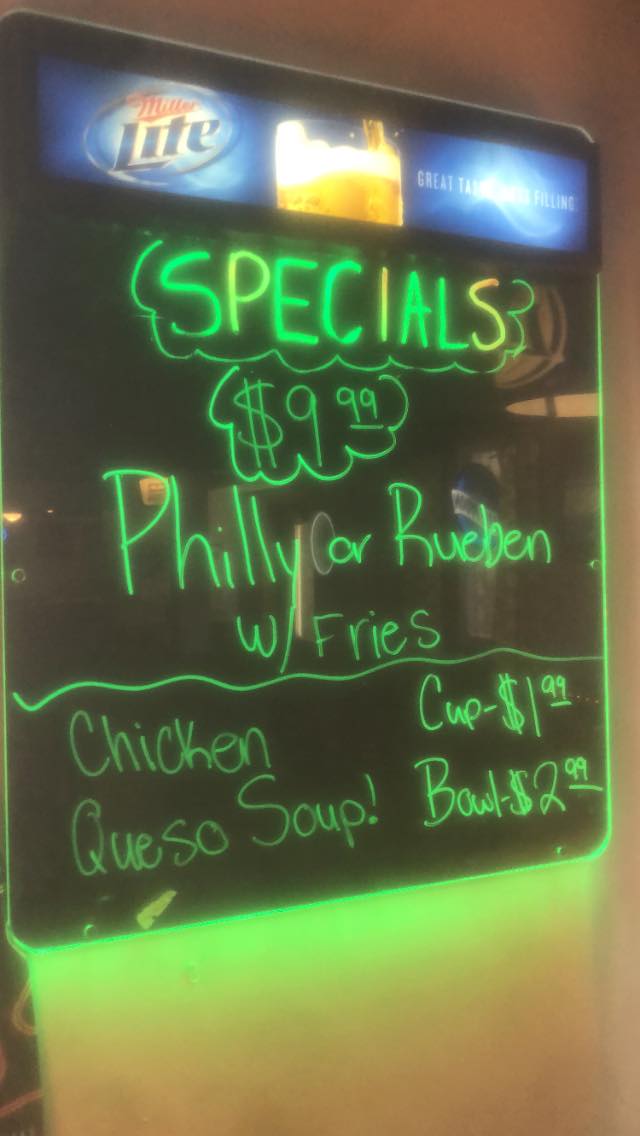 Miller
Lite
GREAT TASTE LESS FILLING
SPECIALS
$9.99
Philly or Rueben
w/ Fries
Chicken
Queso Soup!
Cup-$1.99
Bowl-$2.99